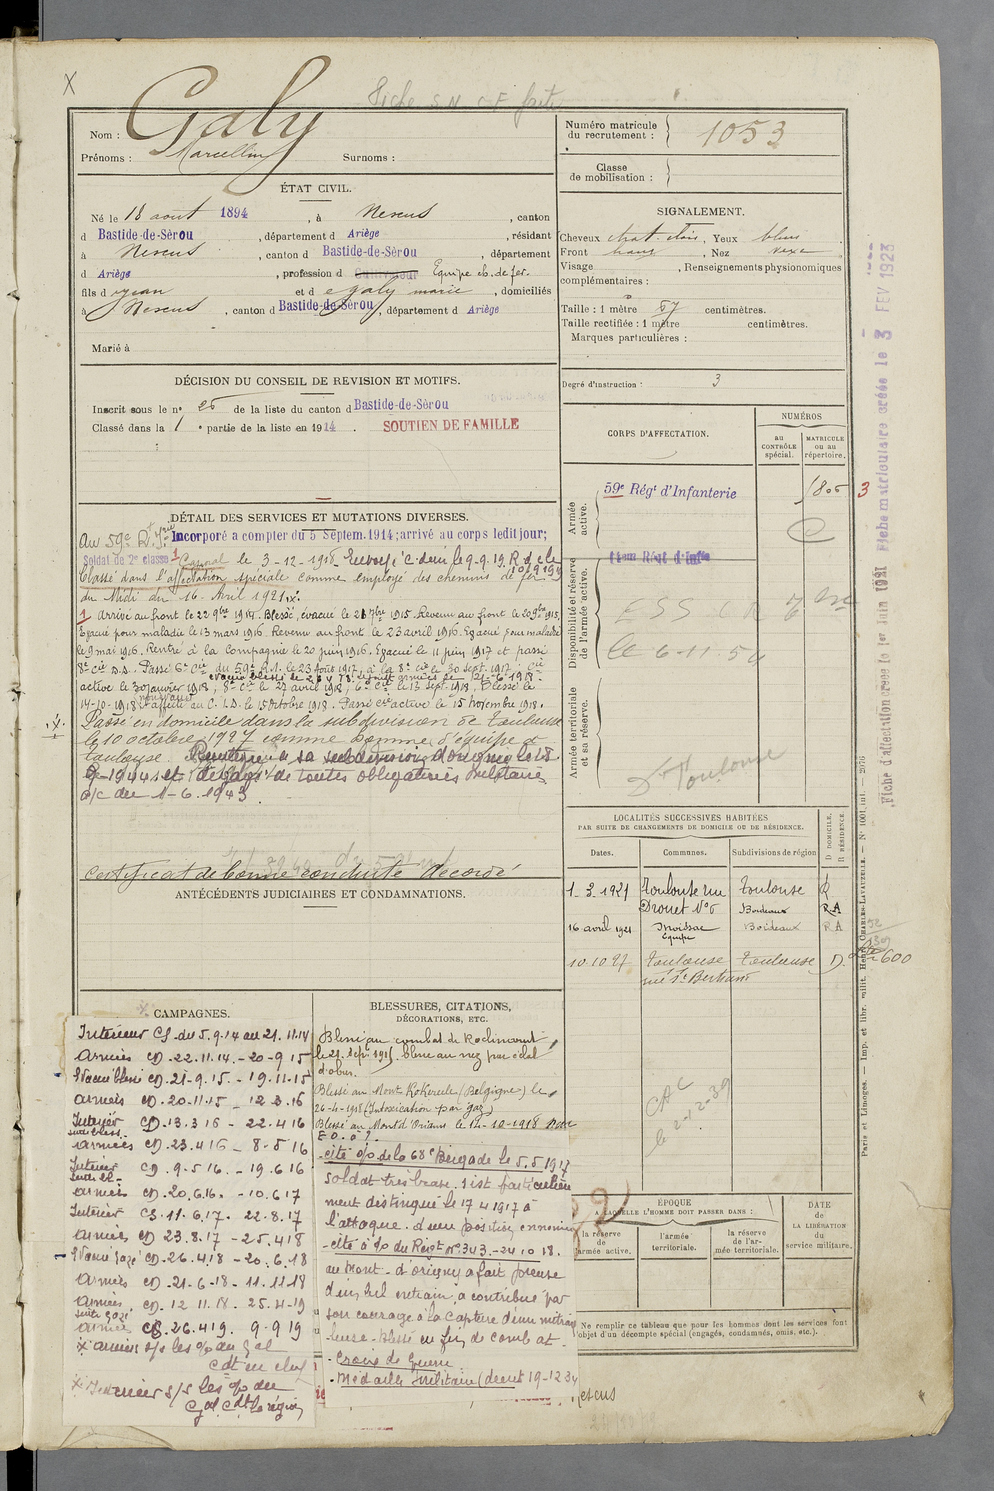 X
Fiche S.N.C.F. faite
Nom : Galy
Prénoms : Marcellin Surnoms :
Numéro matricule du recrutement : 1053
Classe de mobilisation :
ÉTAT CIVIL.
Né le 18 août 1894, à Nescus, canton
d Bastide-de-Sérou, département d Ariège, résidant
à Nescus, canton d Bastide-de-Sérou, département
d Ariège, profession d Cultivateur Equipe ch. de fer.
fils d Jean et d Galy Marie, domiciliés
à Nescus, canton d Bastide-de-Sérou, département d Ariège
Marié à
SIGNALEMENT.
Cheveux chat. clair, Yeux bleus
Front moy, Nez vexe
Visage , Renseignements physionomiques
complémentaires :
Taille : 1 mètre 57 centimètres.
Taille rectifiée : 1 mètre centimètres.
Marques particulières :
Degré d'instruction : 3
DÉCISION DU CONSEIL DE REVISION ET MOTIFS.
Inscrit sous le n° 26 de la liste du canton d Bastide-de-Sérou
Classé dans la 1e partie de la liste en 1914. SOUTIEN DE FAMILLE
CORPS D'AFFECTATION.
NUMÉROS
AU CONTRÔLE spécial.
MATRICULE ou au répertoire.
Armée active.
59e Régt d'Infanterie
1806
3
Disponibilité et réserve de l'armée active.
14eme Régt d'Infie
ESS CR 7
le 6-11-54
Armée territoriale et sa réserve.
Dt Toulouse
DÉTAIL DES SERVICES ET MUTATIONS DIVERSES.
Au 59e Rt d'Irie Incorporé a compter du 5 Septem. 1914; arrivé au corps ledit jour;
Soldat de 2e classe 1 Caporal le 3-12-1918 Envoyé c. demi le 9.9.19. R d c le 10.9.1919
Classé dans l'affectation spéciale comme employé des chemins de fer
du Midi du 16 Avril 1921.
1 Arrivé au front le 22 9bre 1914. Blessé, évacué le 21 7bre 1915. Revenu au front le 20 9bre 1915.
Evacué pour maladie le 13 mars 1916. Revenu au front le 23 avril 1916. Evacué pour maladie
le 9 mai 1916. Rentré à la compagnie le 20 juin 1916. Evacué le 11 juin 1917 et passé
8e Cie D.D. Passé 6e Cie du 59e R.I. le 23 Août 1917, à la 8e cie le 30 sept. 1917; Cie
évacué blessé le 26.4.18. Rejoint armées le 21-6-1918.
active le 30 janvier 1918; 8e Cie le 27 avril 1918; 6e Cie le 13 sept. 1918. Blessé le
14-10-1918 et affecté au C.I.D. le 15 Octobre 1918. Passé cie active le 15 Novembre 1918.
Passé en domicile dans la subdivision de Toulouse
le 10 octobre 1927 comme homme d'équipe à
Toulouse. Réintègre sa subdivision d'origine le 18
9-1944 et dégagé de toutes obligations militaires
à/c du 1-6-1943.
Certificat de bonne conduite "Accordé"
ANTÉCÉDENTS JUDICIAIRES ET CONDAMNATIONS.
LOCALITÉS SUCCESSIVES HABITÉES
PAR SUITE DE CHANGEMENTS DE DOMICILE OU DE RÉSIDENCE.
Dates. Communes. Subdivisions de région
D. DOMICILE. R. RÉSIDENCE.
1.3.1921 Toulouse rue Toulouse R
Drouet N°6 Bordeaux R.A
16 avril 1921 Moissac Bordeaux RA
Equipe
10.10.27 Toulouse Toulouse D.
rue St Bertrand
600
CAC
le 2-12-39
CAMPAGNES.
Intérieur CS du 5.9.14 au 21.11.14
Armées CD. 22.11.14. - 20-9 15
Evacué blessé CD. 21-9.15. - 19.11.15
Armées CD. 20.11.15 _ 12 3.16
Intérieur CD. 13.3 16 - 22.4 16
Armées CD. 23.4 16 - 8-5 16
Intérieur CD. 9-5 16. - 19.6 16
Armées CD. 20.6.16. - 10.6 17
Intérieur CS. 11.6.17. 22.8.17
Armées CD 23.8.17 - 25.4 18
Evacué gazé CD. 26.4.18 - 20.6.18
Armées CD. 21-6-18. 11.11.18
Armées CD. 12 11.18. 25.4-19
suite gazé
Armées CS. 26.4 19. 9-9 19
x Armées s/s les o/o du Gal
Cdt en chef
x Intérieur s/s les o/o du
Gal Cdt la région
BLESSURES, CITATIONS, DÉCORATIONS, ETC.
Blessé au combat de Roclincourt
le 21 Sept. 1915. blessure au nez par éclat
d'obus.
Blessé au Mont Kokereele (Belgique) le
26-4-1918 (Intoxication par gaz)
Blessé au Mont d'Origny le 14-10-1918
cité o/o de la 68e Brigade le 5.5 1917
soldat très brave. s'est particulière
ment distingué le 17 4 1917 à
l'attaque d'une position ennemie
- cité à o/o du Régt n° 343 - 24 10 18.
au Mont d'origny a fait preuve
d'un bel entrain, a contribué par
son courage à la capture d'une mitrail
leuse. Blessé en fin de combat.
- Croix de Guerre
- Médaille militaire (décret 19-12 34
ÉPOQUE
A LAQUELLE L'HOMME DOIT PASSER DANS :
la réserve de l'armée active.
l'armée territoriale.
la réserve de l'armée territoriale.
DATE de LA LIBÉRATION du service militaire.
Ne remplir ce tableau que pour les hommes dont les services font
l'objet d'un décompte spécial (engagés, condamnés, omis, etc.).
Nescus
Fiche d'affectation créée le 1er Juin 1921 Fiche matriculaire créée le 3 FEV 1923
Paris et Limoges. — Imp. et libr. milit. Henri CHARLES-LAVAUZELLE. — N° 1001 int. — 2076